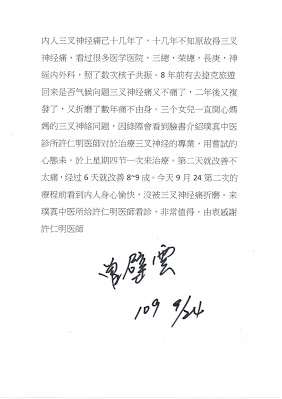 内人三叉神经痛己十几年了，十几年不知原故得三叉
神经痛，看过很多医学医院，三總，榮總，長庚，神
經内外科，照了数次核子共振。8 年前有去捷克旅遊
回来是否气候问题三叉神经痛又不痛了，二年後又複
發了，又折磨了數年痛不由身。三个女兒一直関心媽
媽的三叉神絡問題，因緣際會看到臉書介紹璞真中医
診所許仁明医師对於治療三叉神经的專業，用嘗試的
心態未，於上星期四节一次来治療。第二天就改善不
太痛，经过 6 天就改善 8~9 成。今天 9 月 24 第二次的
療程前看到内人身心愉快，沒被三叉神经痛折磨。来
璞真中医所給許仁明医師看診，非常值得。由衷感謝
許仁明医師
曾璧雲
109 9/24